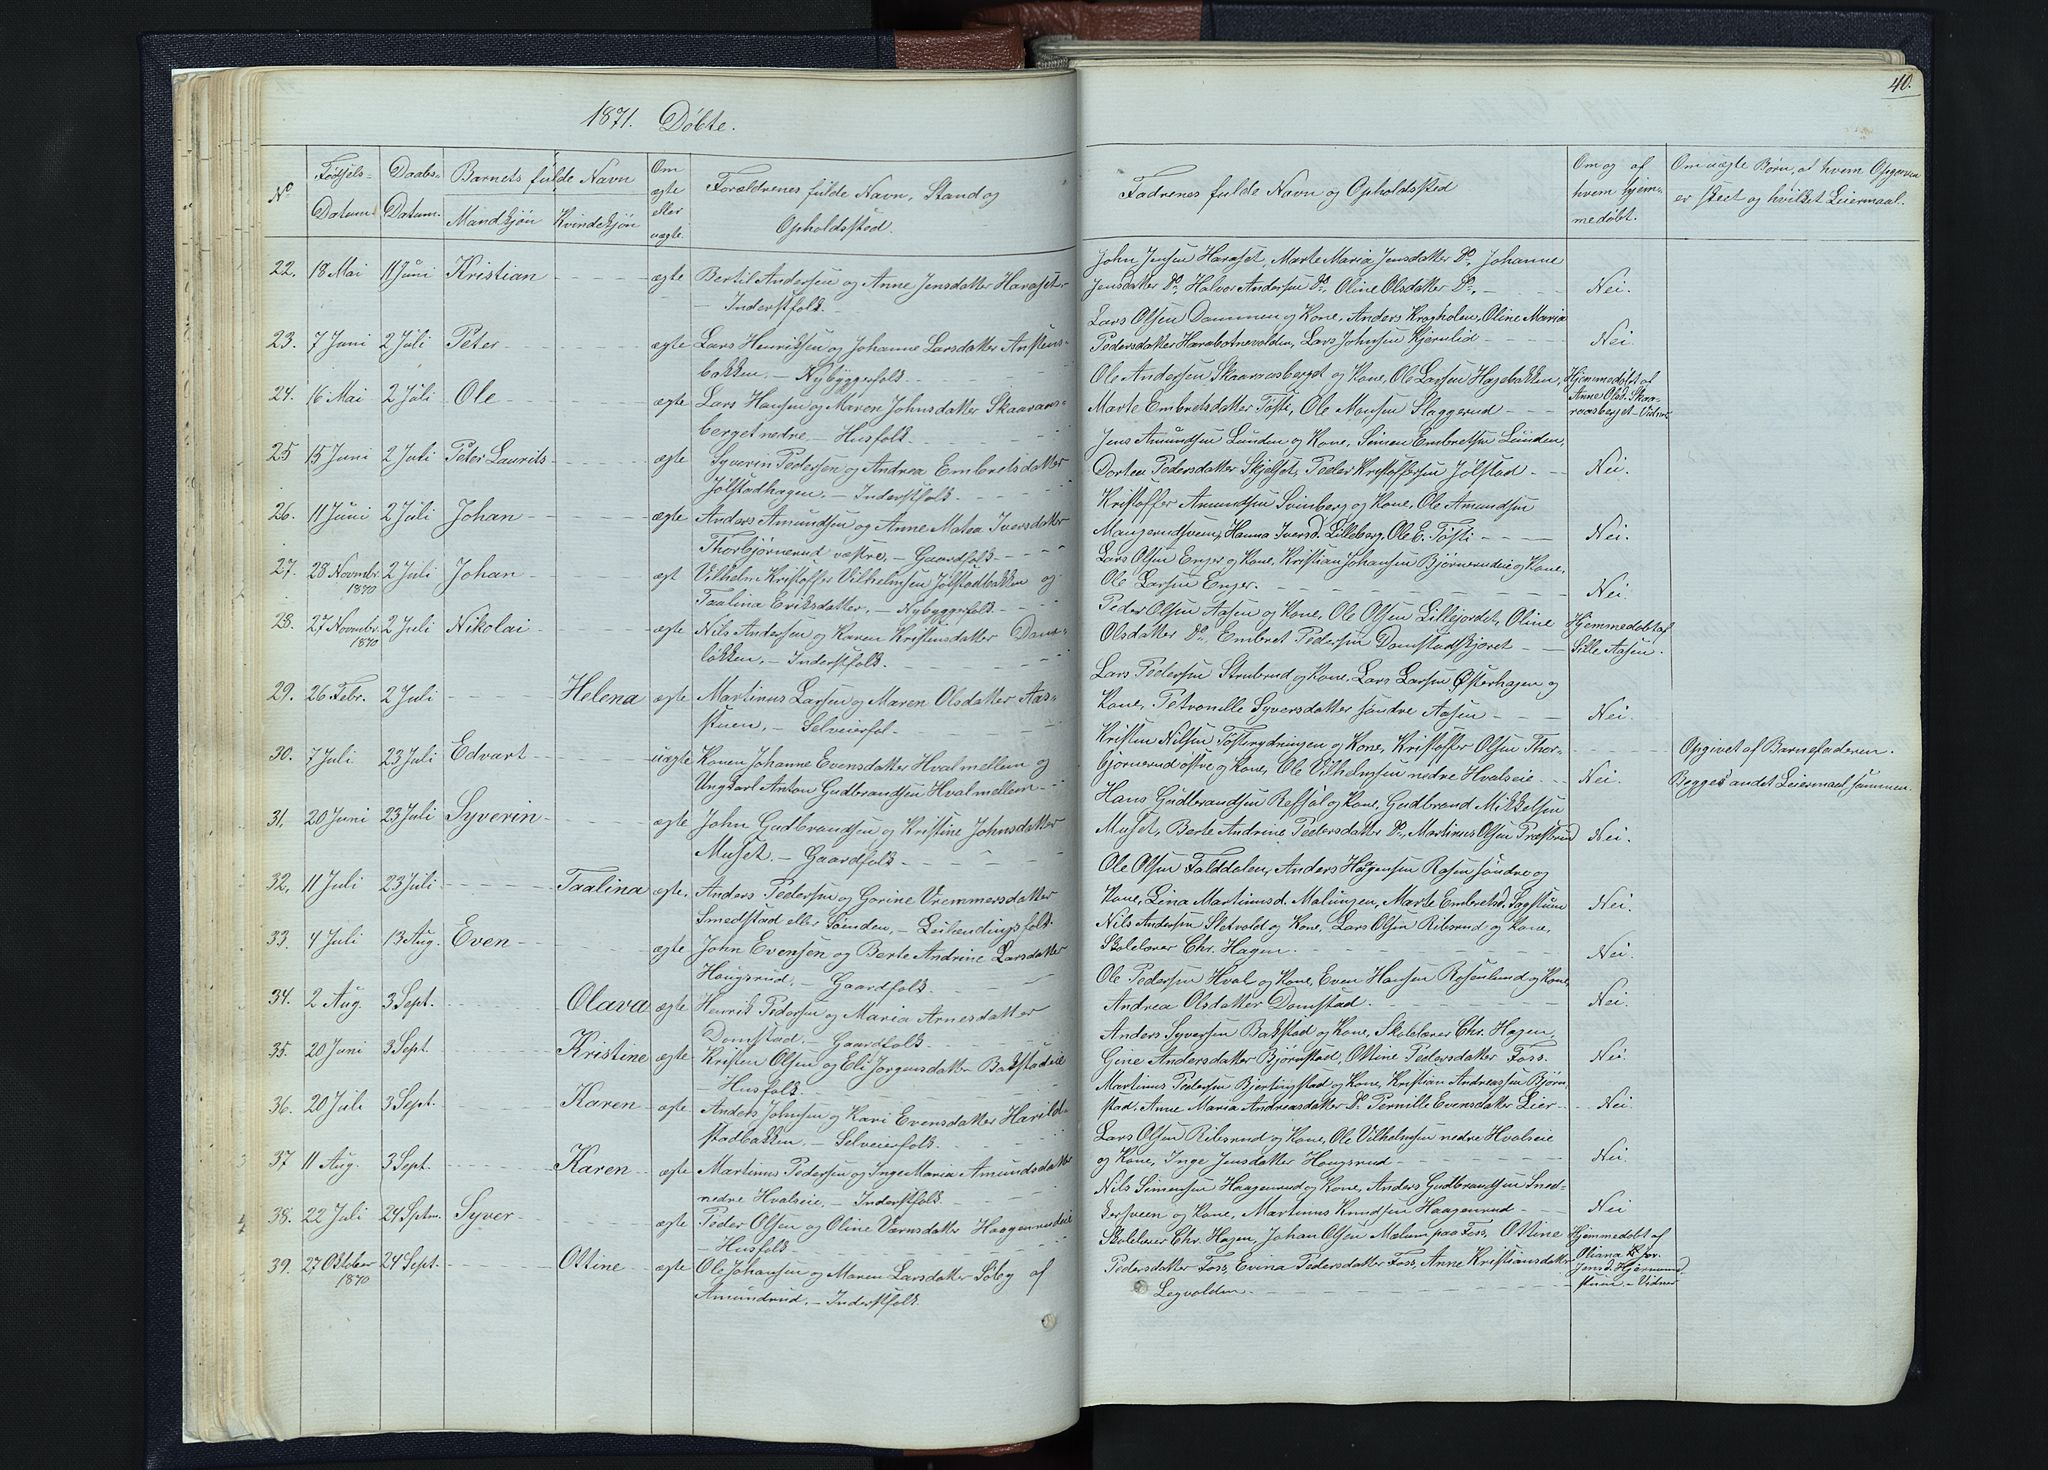 1871. Døbte.
40.
No
Fødsels-
Datum.
Daabs-
Datum.
Barnets fulde Navn
Mandkjøn
Kvindekjøn
Om
ægte
eller
uægte.
Forældrenes fulde Navn, Stand og
Opholdssted.
Fadrenes fulde Navn og Opholdssted
Om og af
hvem hjem-
medøbt.
Om uægte Børn, af hvem Opgaven
er skeet og hvilket Leiermaal.
22. 18 Mai 11 Juni Kristian ægte Bertil Andersen og Anne Jensdatter Haraset
- Inderstfolk.
John Jensen Haraset, Marte Maria Jensdatter Do, Johanne
Jensdatter Do, Halvor Andersen Do, Oline Olsdatter Do. Nei.
23. 7 Juni 2 Juli Peter ægte Lars Henriksen og Johanne Larsdatter Anstens-
bakken. - Nybyggerfolk.
Lars Olsen Dammen og Kone, Anders Krogholen, Oline Maria
Pedersdatter Harabotnevolden, Lars Johnsen Kjernlid Nei.
24. 16 Mai 2 Juli Ole ægte Lars Hansen og Maren Johnsdatter Skaaraas-
berget nedre. - Husfolk.
Ole Andersen Skaaraasberget og Kone, Ole Larsen Hagebakken,
Marte Embretsdatter Tøsti, Ole Monsen Slaggerud
Hjemmedøbt af
Anne Olsd. Skaa-
raasberget - Vidner
25 15 Juni 2 Juli Peter Laurits ægte Syverin Pedersen og Andrea Embretsdatter
Jølstadhagen. - Inderstfolk.
Jens Amundsen Lunden og Kone, Simen Embretsen Lunden,
Dortea Pedersdatter Skjelset, Peder Kristoffersen Jølstad Nei.
26. 11 Juni 2 Juli Johan ægte Anders Amundsen og Anne Matea Iversdatter
Thorbjørnerud vestre. - Gaardfolk
Kristoffer Amundsen Svinberg og Kone, Ole Amundsen
Mangerudsveen, Hanna Iversd. Lilleberg, Ole E. Tøsti Nei.
27. 28 Novmbr. 2 Juli Johan ægt Vilhelm Kristoffer Vilhelmsen Jølstadbakken og
1870
Taalina Eriksdatter. - Nybyggerfolk.
Lars Olsen Enger og Kone, Kristian Johansen Bjørnerudeie og Kone,
Ole Larsen Enger. Nei.
28. 27 Novmbr. 2 Juli Nikolai ægte Nils Andersen og Karen Kristensdatter Dams-
1870
løkken. - Inderstfolk.
Peder Olsen Aasen og Kone, Ole Olsen Lillejordet, Oline
Olsdatter Do, Embret Pedersen Domstadkjøret
Hjemmedøbt af
Sille Aasen.
29. 26 Febr. 2 Juli Helena ægte Martinus Larsen og Maren Olsdatter Aas-
stuen. - Selveierfol
Lars Pedersen Strubrud og Kone, Lars Larsen Østerhagen og
Kone, Petronille Syversdatter søndre Aasen Nei.
30. 7 Juli 23 Juli Edvart uægte Konen Johanne Evensdatter Hvalmellem og
Ungkarl Anton Gudbrandsen Hvalmellem.
Kristen Nilsen Tøsterydningen og Kone, Kristoffer Olsen Thor-
bjørnerud østre og Kone, Ole Vilhelmsen nedre Hvalseie Nei.
Opgivet af Barnefaderen.
Begges andet Leiermaal sammen
31. 20 Juni 23 Juli Syverin ægte John Gudbrandsen og Kristine Johnsdatter
Muset. - Gaardfolk
Hans Gudbrandsen Refsøl og Kone, Gudbrand Mikkelsen
Muset, Berte Andrine Pedersdatter Do, Martinus Olsen Præstrud Nei.
32. 11 Juli 23 Juli Taalina ægte. Anders Pedersen og Gorine Vremmersdatter
Smedstad eller Tønden. - Leilændingsfolk.
Ole Olsen Falddalen, Anders Hagensen Rosen søndre og
Kone, Lina Martinusd. Malungen, Marte Embretsd. Sagstuen Nei.
33. 4 Juli 13 Aug. Even ægte John Evensen og Berte Andrine Larsdatter
Haugsrud. - Gaardfolk.
Nils Andersen Sletvold og Kone, Lars Olsen Ribsrud og Kone,
Skolelærer Chr. Hagen. Nei.
34. 2 Aug. 3 Sept. Olava ægte Henrik Pedersen og Maria Arnesdatter
Domstad. - Gaardfolk.
Ole Pedersen Hval og Kone, Even Hansen Rosenlund og Kone,
Andrea Olsdatter Domstad. Nei.
35. 20 Juni 3 Sept. Kristine ægte Kristen Olsen og Eli Jørgensdatter Bakstadeie
- Husfolk
Anders Syversen Bakstad og Kone, Skolelærer Chr. Hagen,
Gine Andersdatter Bjørnstad, Ottine Pedersdatter Foss. Nei.
36. 20 Juli 3 Sept. Karen ægte Anders Johnsen og Kari Evensdatter Harild-
stadbakken. - Selveierfolk.
Martinus Pedersen Bjertingstad og Kone, Kristian Andreassen Bjørn-
stad, Anne Maria Andreasdatter Do Pernille Evensdatter Lier Nei
37 11 Aug. 3 Sept. Karen ægte Martinus Pedersen og Inge Maria Amundsdatter
nedre Hvalseie. - Inderstfolk.
Lars Olsen Ribsrud og Kone, Ole Vilhelmsen nedre Hvalseie
og Kone, Inge Jensdatter Haugsrud Nei.
38. 22 Juli 24 Septm. Syver ægte Peder Olsen og Oline Værnsdatter Haagenrudeie
- Husfolk
Nils Simensen Haagenrud og Kone, Anders Gudbrandsen Sned-
kersveen og Kone, Martinus Knudsen Haagenrud Nei
39. 27 Oktober 24 Sept. Ottine ægte Ole Johansen og Maren Larsdatter Søby af
1870
Amundrud. - Inderstfolk.
Skolelærer Chr. Hagen, Johan Olsen Malum paa Foss, Ottine
Pedersdatter Foss, Evina Pedersdatter Foss, Anne Kristiansdatter
Legvolden.
Hjemmedøbt af
Oliana
Jensd. Hjermund-
stuen - Vidner